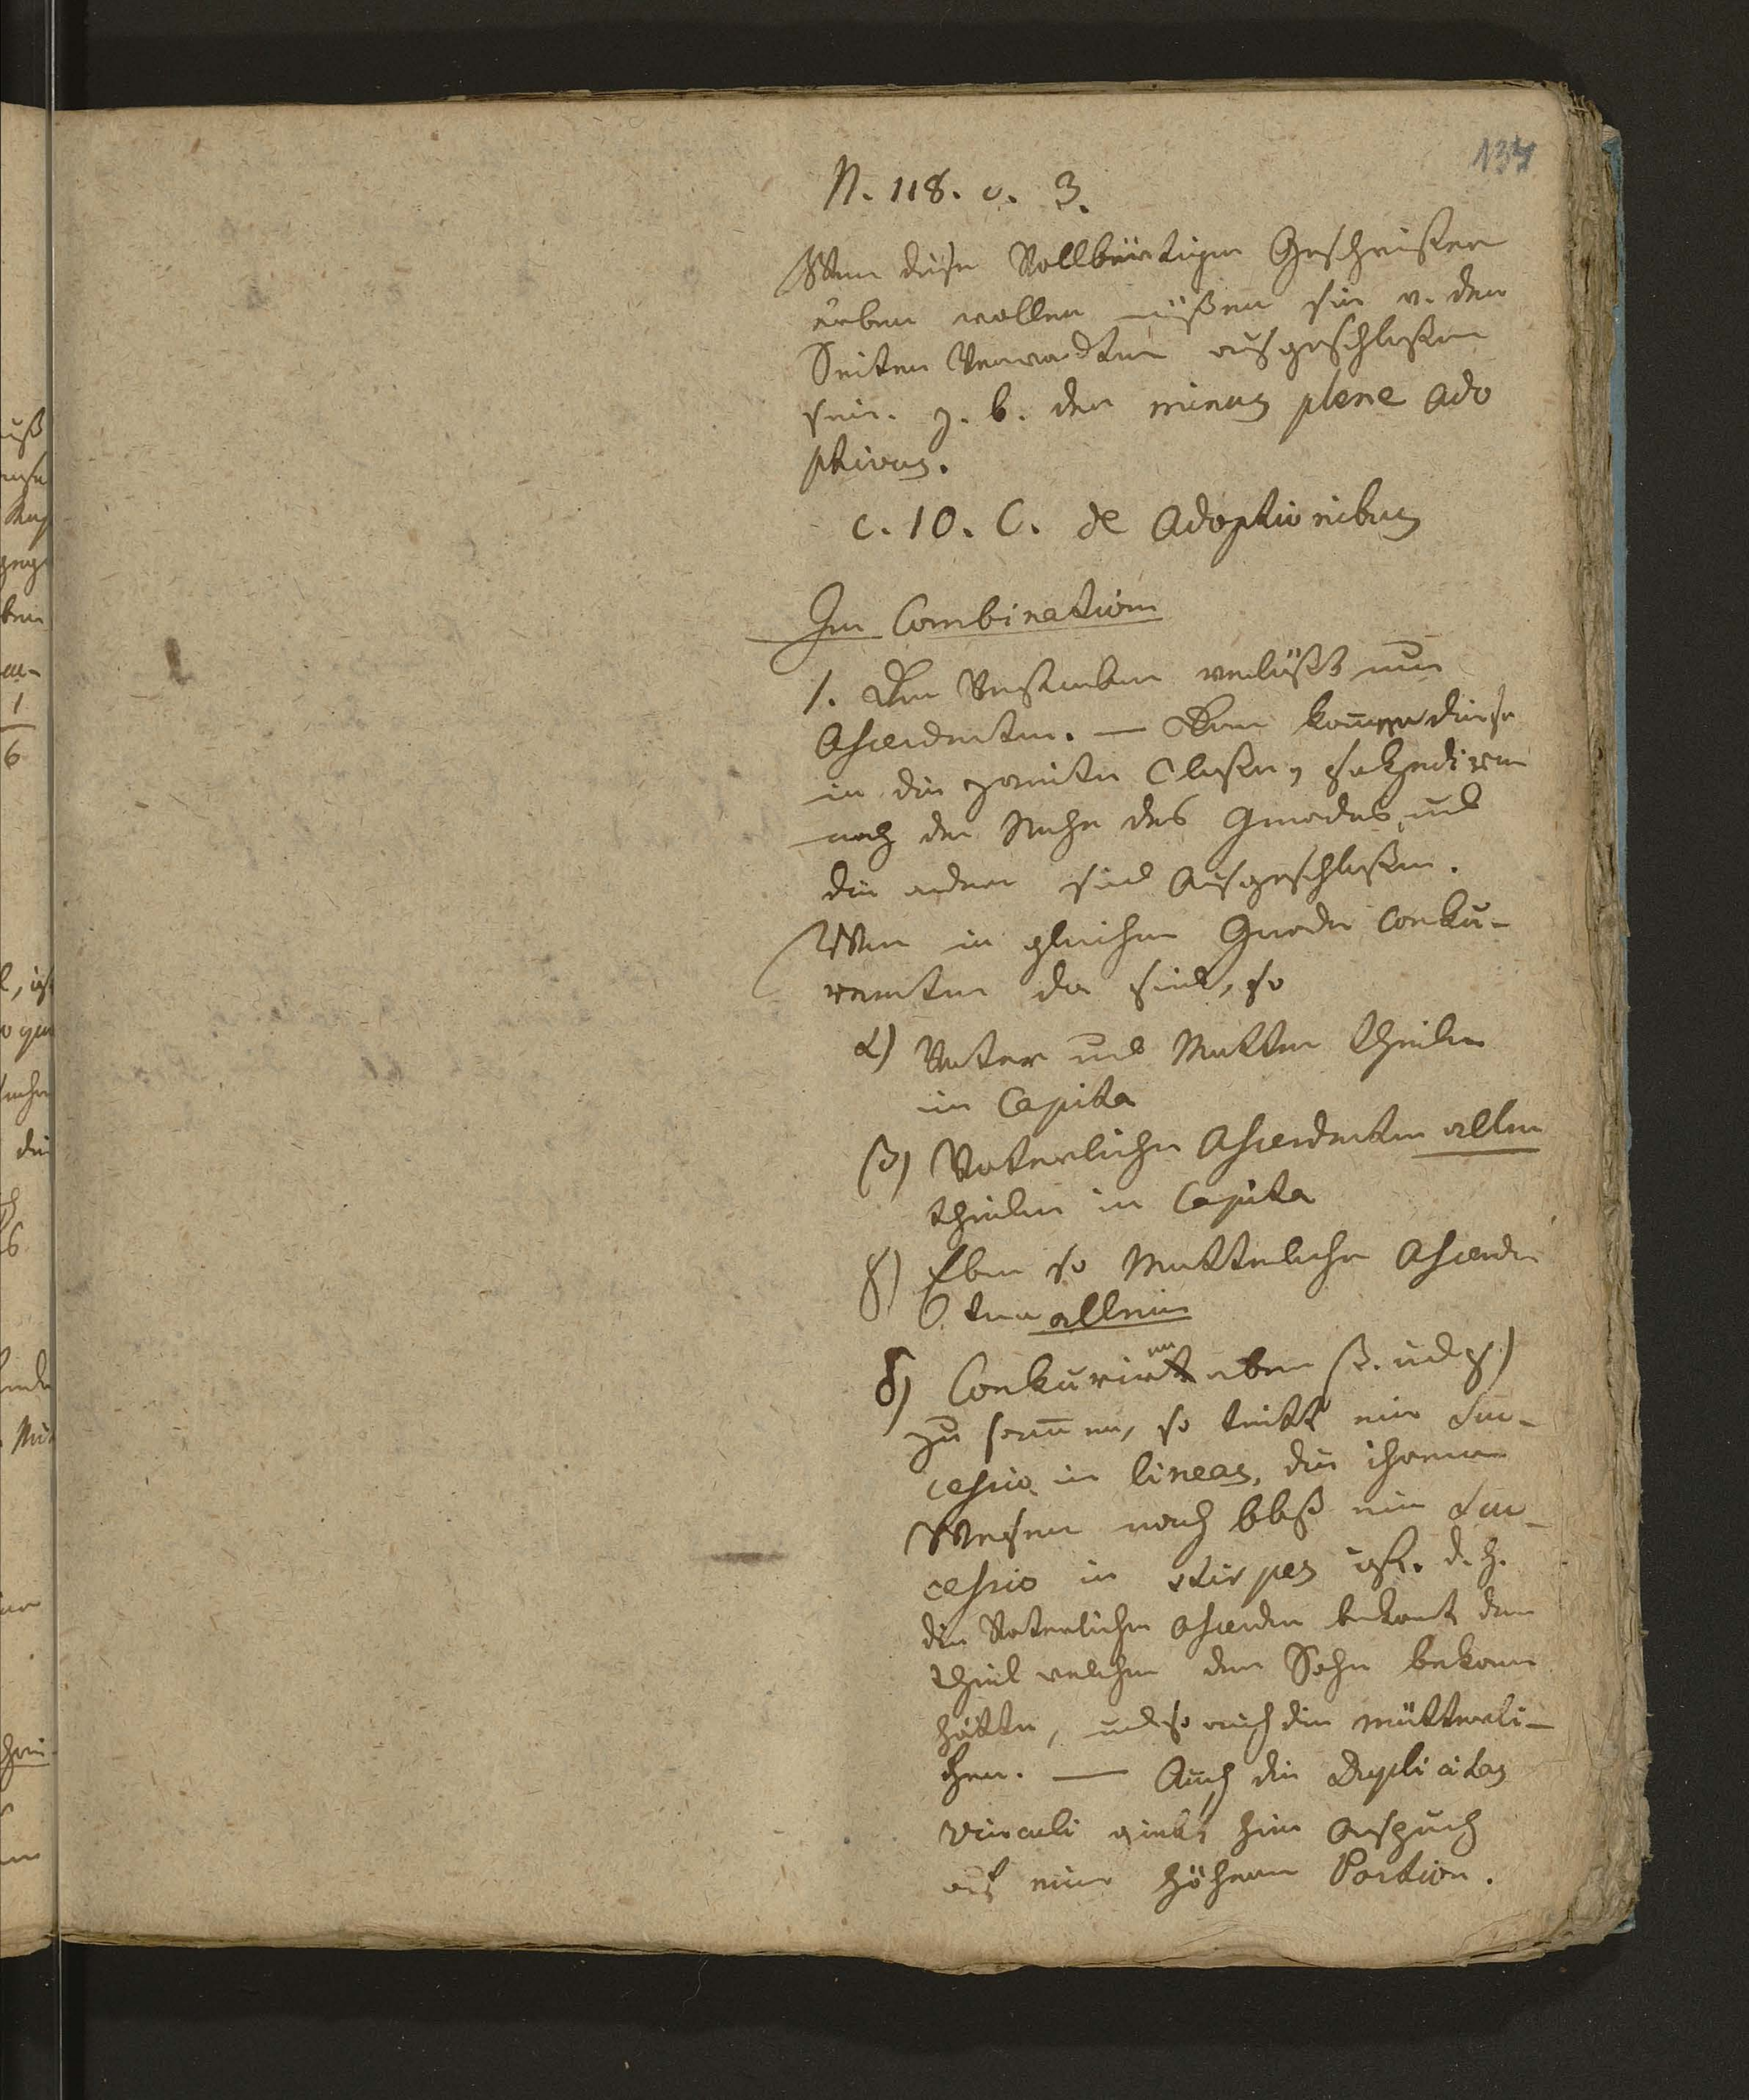 134
N. 118. c. 3.
Wenn diese Vollbürtigen Geschwister
erben wollen müßen sie v. den
Seiten Verwadten ausgeschloßen
sein. z. b. der minus plene ado
ptivus.
c. 10. C. de Adoptionibus
Im Combination
1. Der Verstorben verläßt nur
Ascendenten. — Dann kommen diese
in die zweite Classe, sukzediren
nach der Nähe des Grades, und
die andern sind Ausgeschloßen.
Wenn in gleichem Grade Conku-
renten da sind, so
α) Vater und Mutter theilen
in Capita
β) Vaterliche Ascendenten allein
theilen in Capita
γ) Eben so Mutterliche Ascende
ten allein
δ) Conkuriren aber β. und γ)
zu sammen, so tritt eine Suc-
cessio in lineas, die ihrem
Wesen nach blos eine Suc-
cessio in stirpes ist. d. h.
die Vaterlichen Ascenden bekomt den
Theil welchen der Sohn bekomen
hätte, und so auch die mütterli-
chen. — Auch die Duplicitas
vinculi giebt hier Anspruch
auf eine höhere Portion.